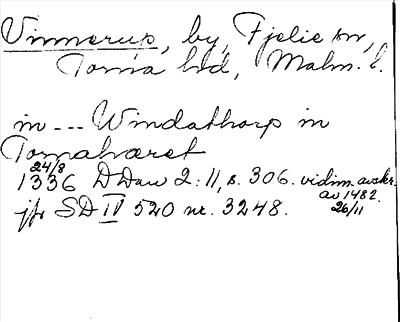 Vinnerup, by, Fjelie sn,
Torna hd, Malm. l.
in --- Windathorp in
Tornahæret
24/8
1336 DDan 2:11, s. 306. vidim. avskr.
av 1482 26/11
jfr SD IV 520 nr. 3248.